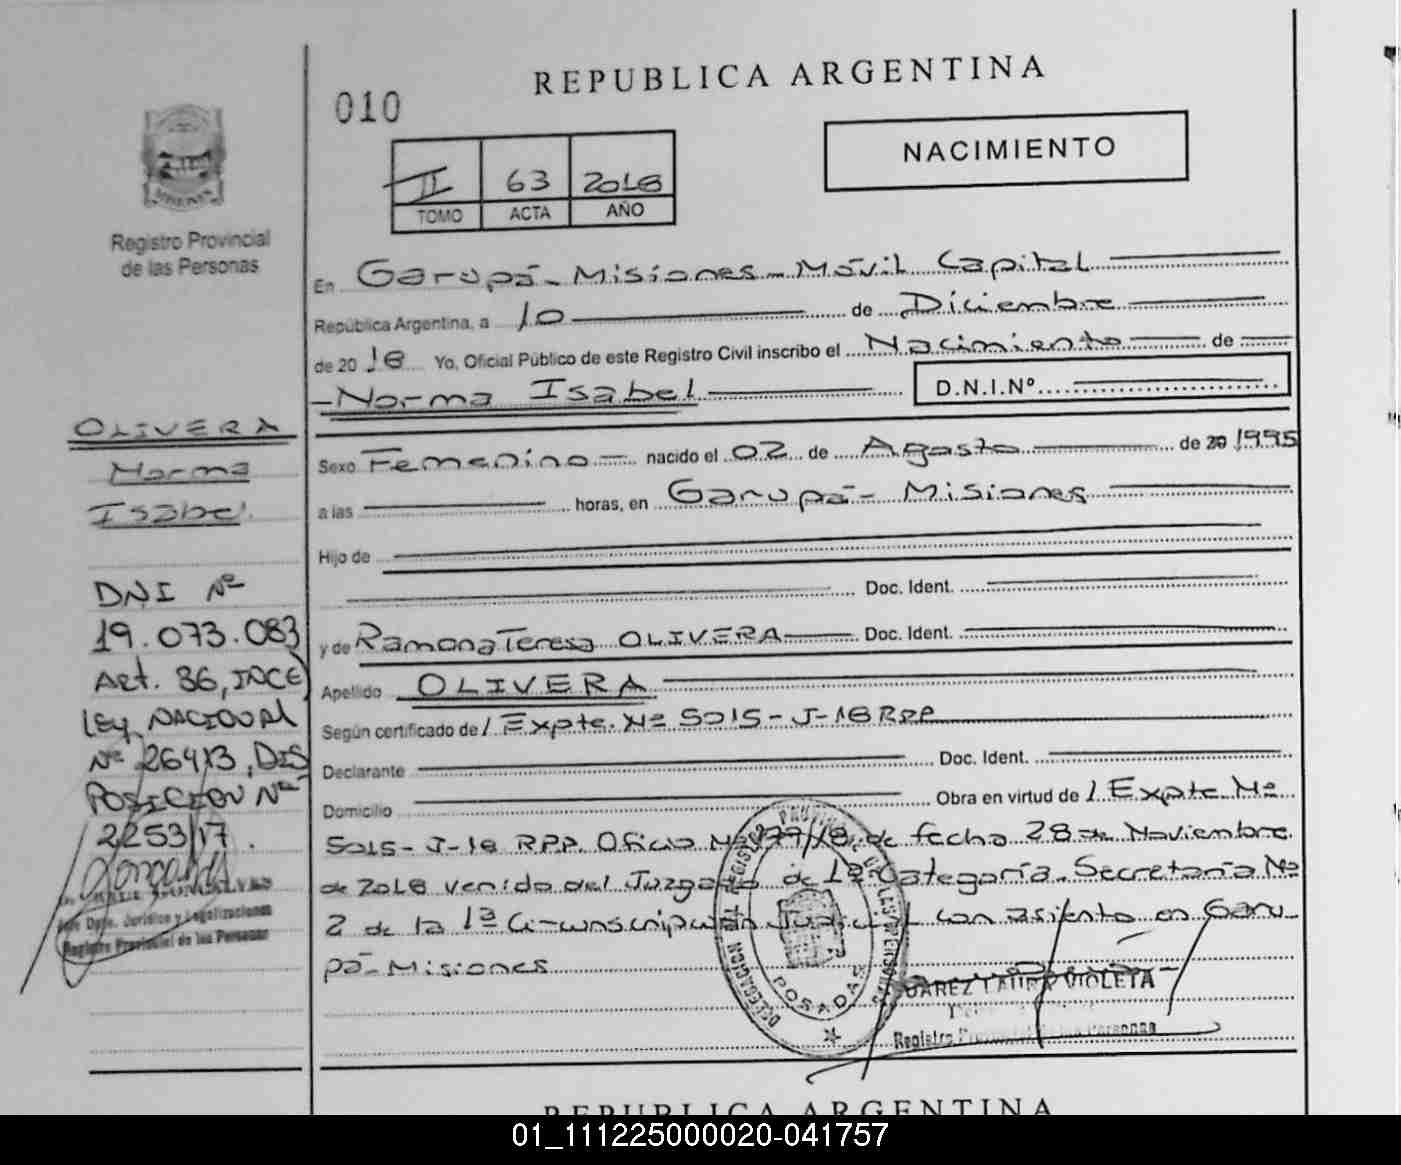 REPUBLICA ARGENTINA
010
NACIMIENTO
II 63 2018
TOMO ACTA AÑO
Registro Provincial
de las Personas
En Garupá - Misiones - Móvil Capital
República Argentina, a 10 de Diciembre
de 2018 Yo, Oficial Público de este Registro Civil inscribo el Nacimiento de
Norma Isabel D.N.I.Nº
Sexo Femenino nacido el 02 de Agosto de 20 1995
a las horas, en Garupá - Misiones
Hijo de
Doc. Ident.
y de Ramona Teresa OLIVERA Doc. Ident.
Apellido OLIVERA
Según certificado de / Expte. Nº 5015-J-18 RPP
Declarante Doc. Ident.
Domicilio Obra en virtud de / Expte Nº
5015-J-18 RPP. Oficio Nº /18, de fecha 28 de Noviembre
de 2018 venido del Juzgado de 1ª Categoría. Secretaría Nº
2 de la 1ª Circunscripción Judicial con asiento en Garu
pá - Misiones
OLIVERA
Norma
Isabel
DNI Nº
19.073.083
Art. 36, INC E)
Ley NACIONAL
Nº 26413, DIS
POSICION Nº
2253/17
Jefe Dpto. Jurídico y Legalizaciones
Registro Provincial de las Personas
DELEGACION REGISTRO PROVINCIAL DE LAS PERSONAS
POSADAS
SUAREZ LAURA VIOLETA
Registro Provincial de las Personas
REPUBLICA ARGENTINA
01_111225000020-041757